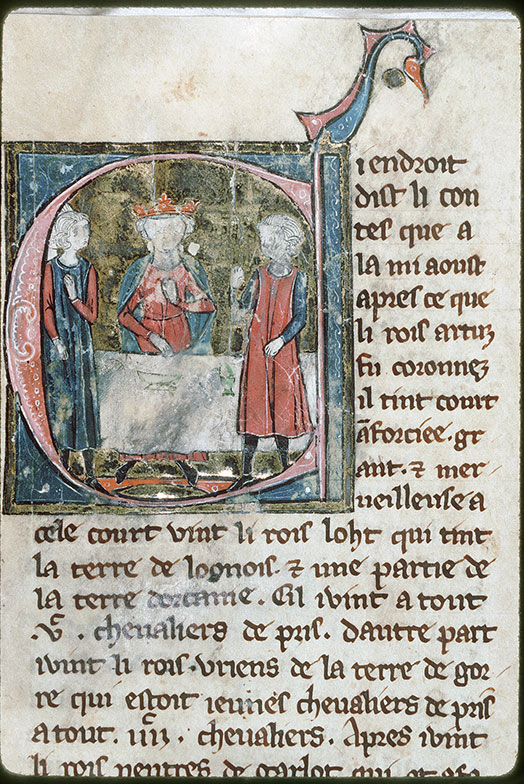 iendroit
dist li con
tes que a
la mi aoust
apres ce que
li rois artuz
fu coronnez
il tint court
aforciee. gr
ant. ⁊ mer
ueilleuse a
cele court uint li rois loht qui tint
la terre de lognois. ⁊ une partie de
la terre dorcanie. Cil iuint a tout
.v͞c. cheualiers de pris. dautre part
iuint li rois.vriens de la terre de gor
re qui estoit ieunes cheualiers de pris
a tout. iiii͞c. cheualiers. Apres iuint
li rois neutres de garlot qui ot